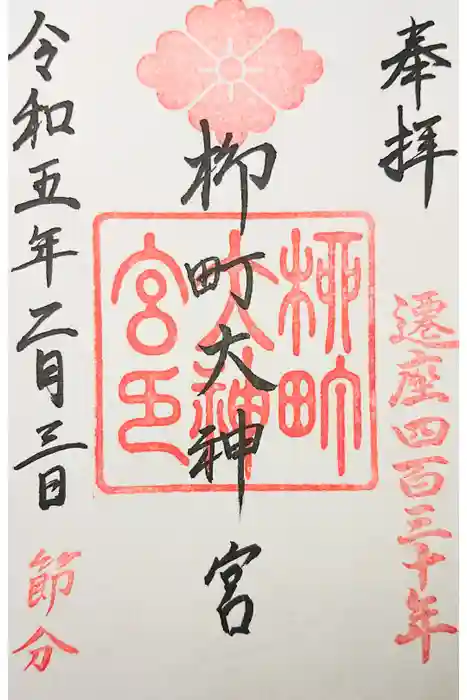 奉拝
遷座四百三十年
柳町大神宮
柳町
大神
宮印
令和五年二月三日
節分